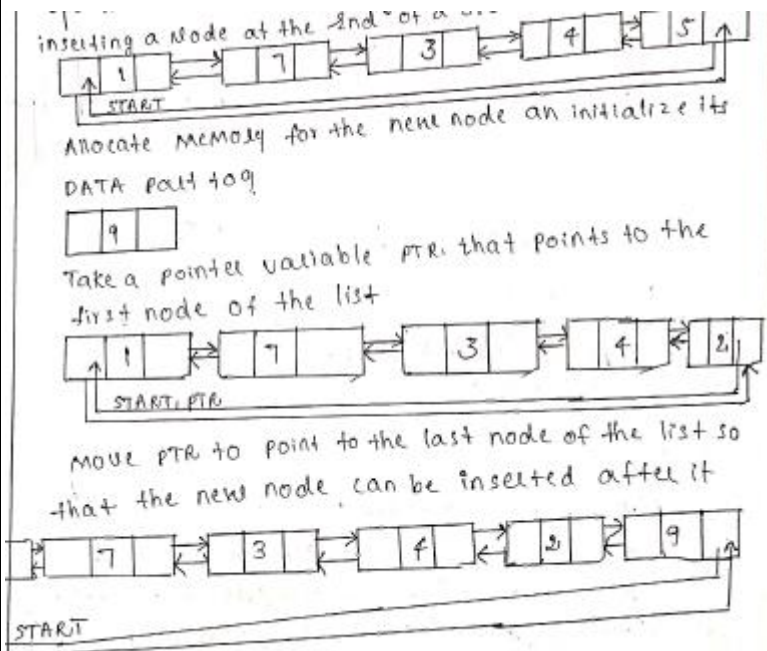 inserting a Node at the End of a
1 7 3 4 5
START
Allocate Memory for the new node an initialize its
DATA Part to 9
9
Take a pointer variable PTR. that points to the
first node of the list
1 7 3 4 2
START, PTR
Move PTR to point to the last node of the list so
that the new node can be inserted after it
7 3 4 2 9
START